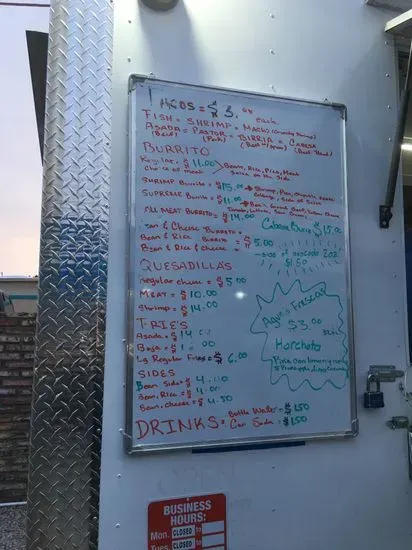 TACOS = $3.00 each
FISH = SHRIMP = MACHO (Crunchy Shrimp)
ASADA = PASTOR = BIRRIA = CABESA
(Beef) (Pork) (Beef Head)
BURRITO
Regular = $11.00 Bean, Rice, Pico, Meat
choice of meat Salsa on the side
SHRIMP Burrito = $15.00 Shrimp, Pico, chipotle sauce
cabbage, side of Salsa
SUPREME Burrito = $11.00 Beans Ground Beef, Cheese
Tomato, Lettuce, Sour Cream
All MEAT BURRITO = $14.00
Cabesa Burro $15.00
Bean & Cheese Burrito =
Bean & Rice Burrito = $5.00
Bean & Rice & cheese =
side of avocado 2oz
$1.50
QUESADILLAS
regular cheese = $5.00
MEAT = $10.00
Shrimp = $14.00
Aguas Frescas
$3.00
32oz
Horchata
Pina
& Pineapple
FRIE'S
Asada = $14.00
Lg Regular Fries = $6.00
SIDES
Bean Side = $4.00
Bean, Rice = $4.00
Bean, Cheese = $4.50
DRINKS = Bottle Water = $1.50
Can Soda = $1.50
BUSINESS
HOURS:
Mon. CLOSED to
Tues. CLOSED to